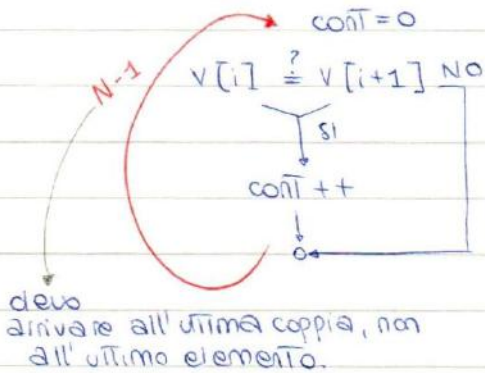 cont = 0
N-1
V[i] ?= V[i+1] NO
SI
cont ++
devo
arrivare all'ultima coppia, non
all'ultimo elemento.